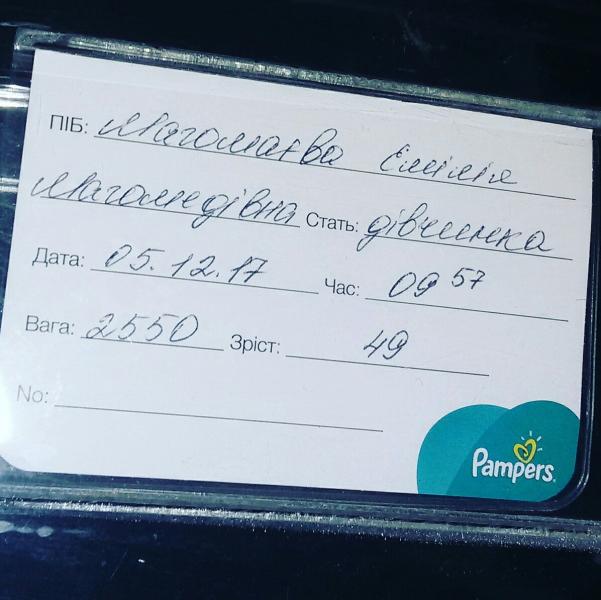 ПІБ: Магомаєва Емілія
Магомедівна Стать: дівчинка
Дата: 05.12.17 Час: 09 57
Вага: 2550 Зріст: 49
No:
Pampers